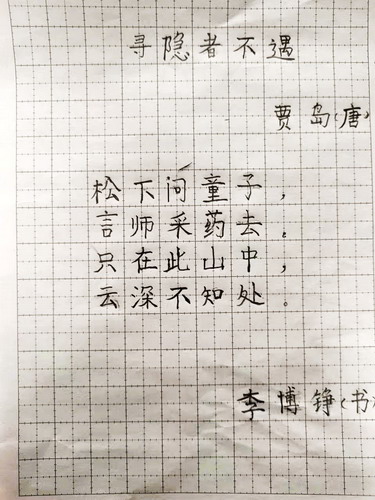 寻隐者不遇
贾岛(唐)
松下问童子，
言师采药去。
只在此山中，
云深不知处。
李博铮(书)